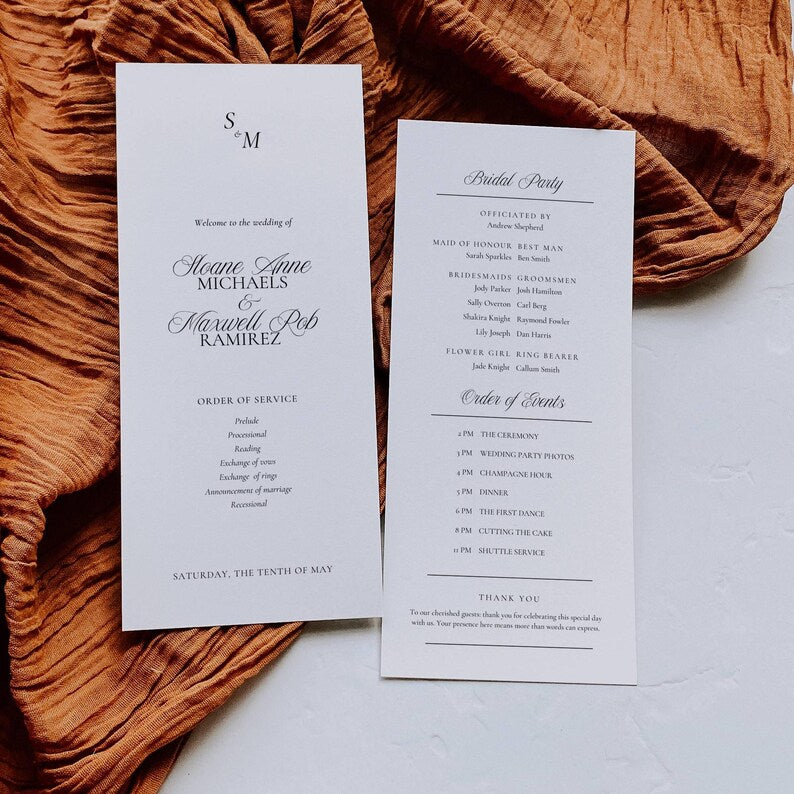 S
&
M
Welcome to the wedding of
Sloane Anne
MICHAELS
&
Maxwell Rob
RAMIREZ
ORDER OF SERVICE
Prelude
Processional
Reading
Exchange of vows
Exchange of rings
Announcement of marriage
Recessional
SATURDAY, THE TENTH OF MAY
Bridal Party
OFFICIATED BY
Andrew Shepherd
MAID OF HONOUR BEST MAN
Sarah Sparkles Ben Smith
BRIDESMAIDS GROOMSMEN
Jody Parker Josh Hamilton
Sally Overton Carl Berg
Shakira Knight Raymond Fowler
Lily Joseph Dan Harris
FLOWER GIRL RING BEARER
Jade Knight Callum Smith
Order of Events
2 PM THE CEREMONY
3 PM WEDDING PARTY PHOTOS
4 PM CHAMPAGNE HOUR
5 PM DINNER
6 PM THE FIRST DANCE
8 PM CUTTING THE CAKE
11 PM SHUTTLE SERVICE
THANK YOU
To our cherished guests: thank you for celebrating this special day
with us. Your presence here means more than words can express.